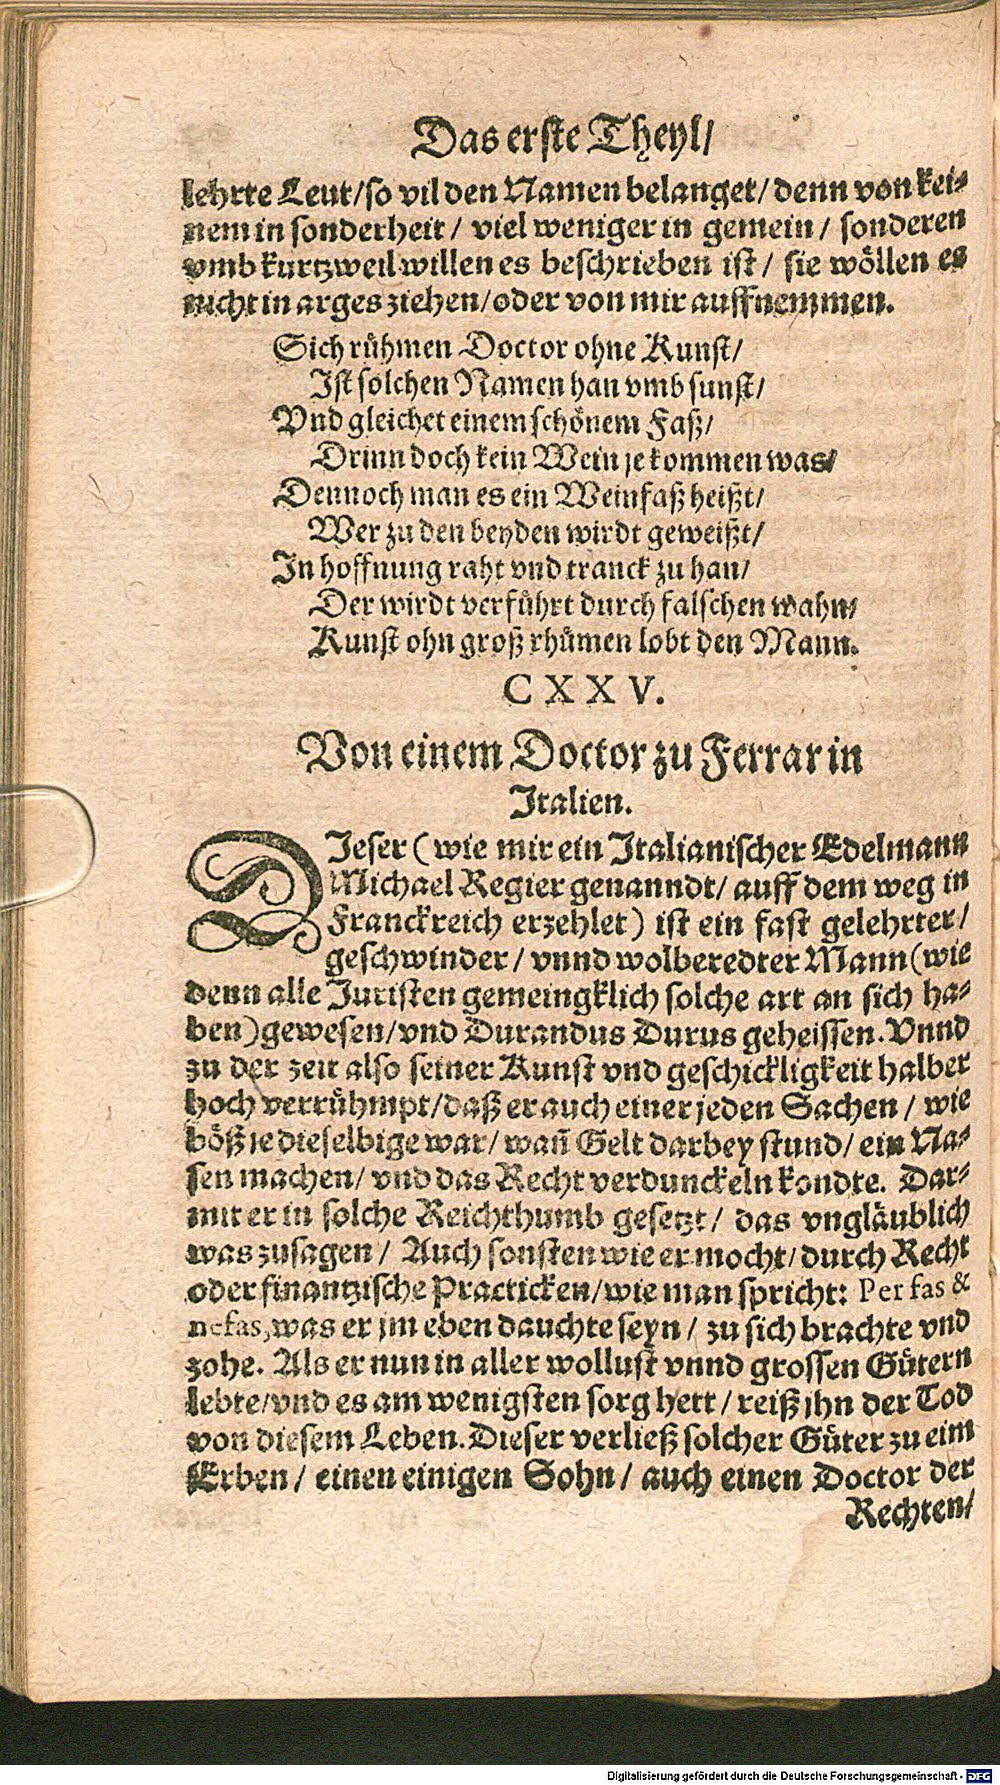 Das erste Theyl/
lehrte Leut/so vil den Namen belanget/denn von kei-
nem in sonderheit / viel weniger in gemein / sonderen
vmb kurtzweil willen es beschrieben ist / sie wöllen es
nicht in arges ziehen/oder von mir auffnemmen.
Sich rühmen Doctor ohne Kunst/
Ist solchen Namen han vmb sunst/
Vnd gleichet einem schönem Faß/
Drinn doch kein Wein je kommen was/
Dennoch man es ein Weinfaß heißt/
Wer zu den beyden wirdt geweißt/
In hoffnung raht vnd tranck zu han/
Der wirdt verführt durch falschen wahn/
Kunst ohn groß rhümen lobt den Mann.
CXXV.
Von einem Doctor zu Ferrar in
Italien.
DIeser (wie mir ein Italianischer Edelmann
Michael Regier genanndt/ auff dem weg in
Franckreich erzehlet) ist ein fast gelehrter/
geschwinder / vnnd wolberedter Mann (wie
denn alle Juristen gemeingklich solche art an sich ha-
ben) gewesen/vnd Durandus Durus geheissen. Vnnd
zu der zeit also seiner Kunst vnd geschickligkeit halber
hoch verrühmpt/daß er auch einer jeden Sachen / wie
böß je dieselbige war/ wañ Gelt darbey stund/ ein Na-
sen machen/ vnd das Recht verdunckeln kondte. Dar-
mit er in solche Reichthumb gesetzt / das vngläublich
was zusagen / Auch sonsten wie er mocht/durch Recht
oder finantzische Practicken/wie man spricht: Per fas &
nefas, was er jm eben dauchte seyn / zu sich brachte vnd
zohe. Als er nun in aller wollust vnnd grossen Gütern
lebte/vnd es am wenigsten sorg hett / reiß ihn der Tod
von diesem Leben. Dieser verließ solcher Güter zu eim
Erben / einen einigen Sohn / auch einen Doctor der
Rechten/
Digitalisierung gefördert durch die Deutsche Forschungsgemeinschaft - DFG